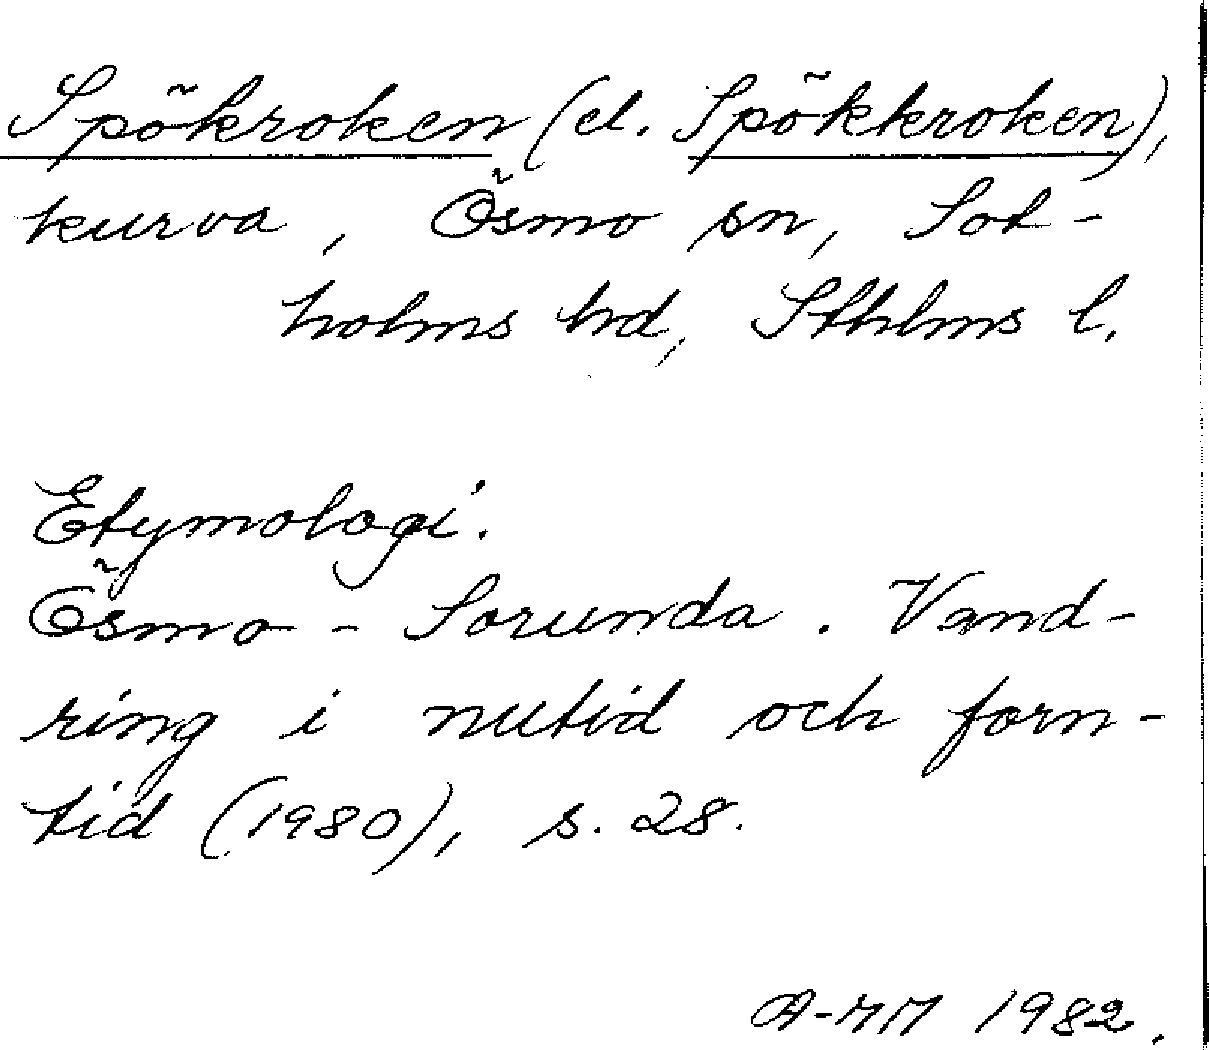 Spökroken (el. Spökkroken),
kurva, Ösmo sn, Sot-
holms hd, Sthlms l.
Etymologi.
Ösmo - Sorunda. Vand-
ring i nutid och forn-
tid (1980), s. 28.
A-MM 1982.